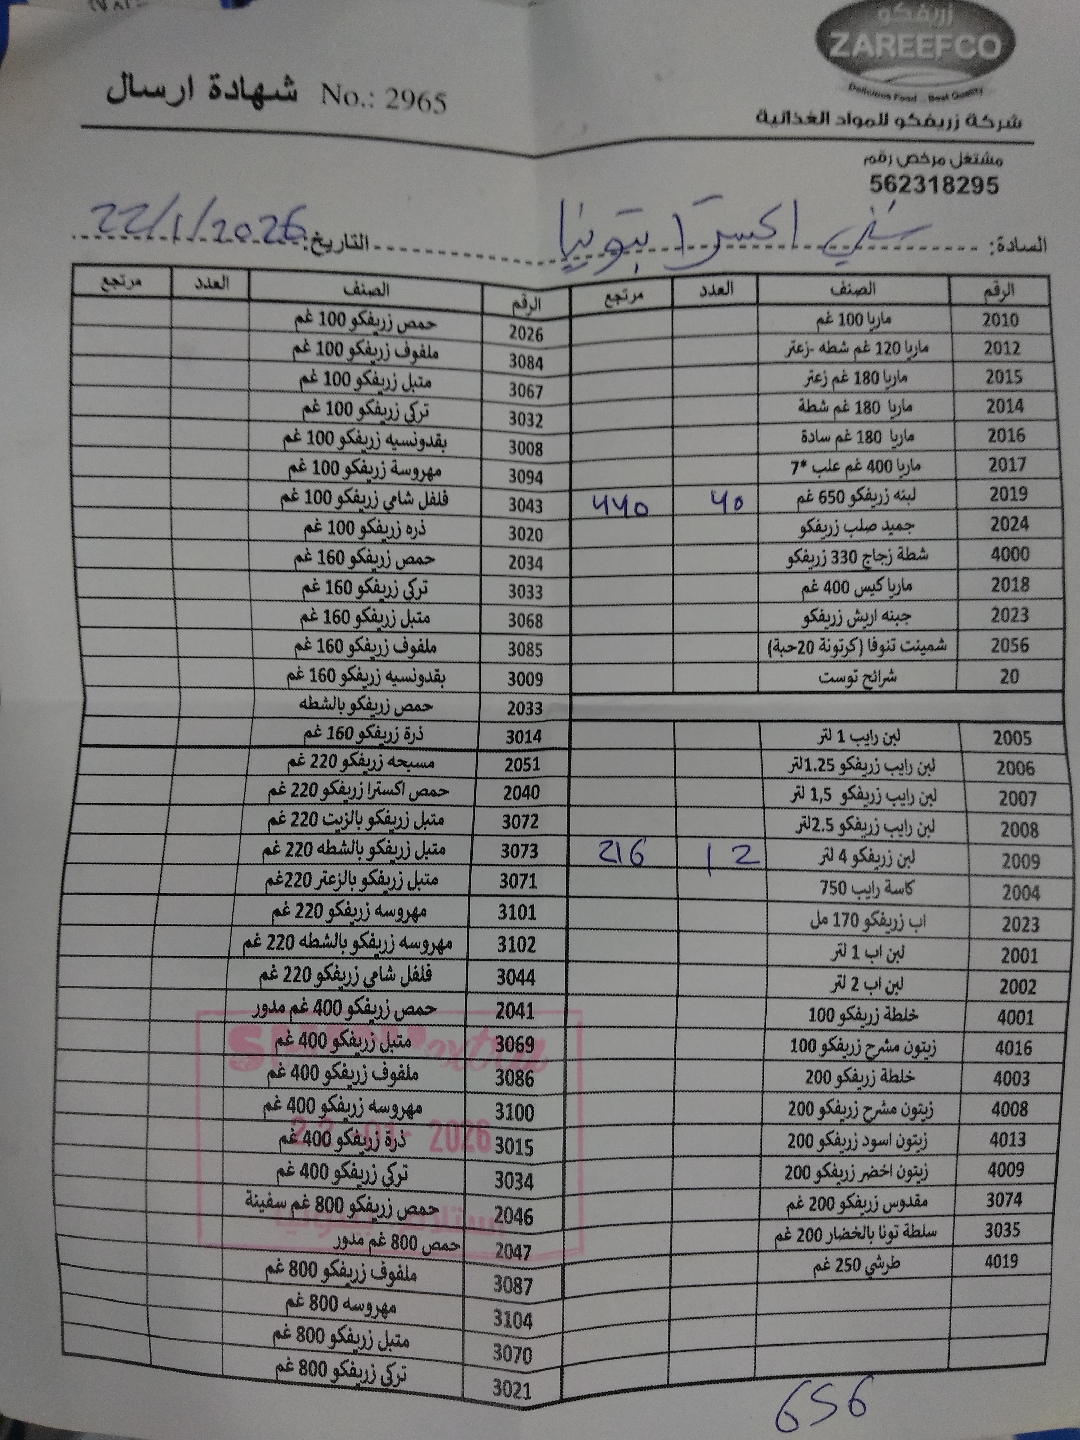 زريفكو
ZAREEFCO
Delicious Food .. Best Quality
شهادة ارسال No.: 2965
شركة زريفكو للمواد الغذائية
مشتغل مرخص رقم
562318295
السادة: سني اكسترا بتونيا التاريخ: 22/1/2026
الرقم الصنف العدد مرتجع
2010 ماريا 100 غم
2012 ماريا 120 غم شطه -زعتر
2015 ماريا 180 غم زعتر
2014 ماريا 180 غم شطة
2016 ماريا 180 غم سادة
2017 ماريا 400 غم علب *7
2019 لبنه زريفكو 650 غم 40 440
2024 جميد صلب زريفكو
4000 شطة زجاج 330 زريفكو
2018 ماريا كيس 400 غم
2023 جبنه اريش زريفكو
2056 شمينت تنوفا (كرتونة 20حبة)
20 شرائح توست
2005 لبن رايب 1 لتر
2006 لبن رايب زريفكو 1.25لتر
2007 لبن رايب زريفكو 1,5 لتر
2008 لبن رايب زريفكو 2.5لتر
2009 لبن زريفكو 4 لتر 12 216
2004 كاسة رايب 750
2023 اب زريفكو 170 مل
2001 لبن اب 1 لتر
2002 لبن اب 2 لتر
4001 خلطة زريفكو 100
4016 زيتون مشرح زريفكو 100
4003 خلطة زريفكو 200
4008 زيتون مشرح زريفكو 200
4013 زيتون اسود زريفكو 200
4009 زيتون اخضر زريفكو 200
3074 مقدوس زريفكو 200 غم
3035 سلطة تونا بالخضار 200 غم
4019 طرشي 250 غم
الرقم الصنف العدد مرتجع
2026 حمص زريفكو 100 غم
3084 ملفوف زريفكو 100 غم
3067 متبل زريفكو 100 غم
3032 تركي زريفكو 100 غم
3008 بقدونسيه زريفكو 100 غم
3094 مهروسة زريفكو 100 غم
3043 فلفل شامي زريفكو 100 غم
3020 ذره زريفكو 100 غم
2034 حمص زريفكو 160 غم
3033 تركي زريفكو 160 غم
3068 متبل زريفكو 160 غم
3085 ملفوف زريفكو 160 غم
3009 بقدونسيه زريفكو 160 غم
2033 حمص زريفكو بالشطه
3014 ذرة زريفكو 160 غم
2051 مسبحه زريفكو 220 غم
2040 حمص اكسترا زريفكو 220 غم
3072 متبل زريفكو بالزيت 220 غم
3073 متبل زريفكو بالشطه 220 غم
3071 متبل زريفكو بالزعتر 220غم
3101 مهروسه زريفكو 220 غم
3102 مهروسه زريفكو بالشطه 220 غم
3044 فلفل شامي زريفكو 220 غم
2041 حمص زريفكو 400 غم مدور
3069 متبل زريفكو 400 غم
3086 ملفوف زريفكو 400 غم
3100 مهروسه زريفكو 400 غم
3015 ذرة زريفكو 400 غم
3034 تركي زريفكو 400 غم
2046 حمص زريفكو 800 غم سفينة
2047 حمص 800 غم مدور
3087 ملفوف زريفكو 800 غم
3104 مهروسه 800 غم
3070 متبل زريفكو 800 غم
3021 تركي زريفكو 800 غم
extra
22-01-2026
656